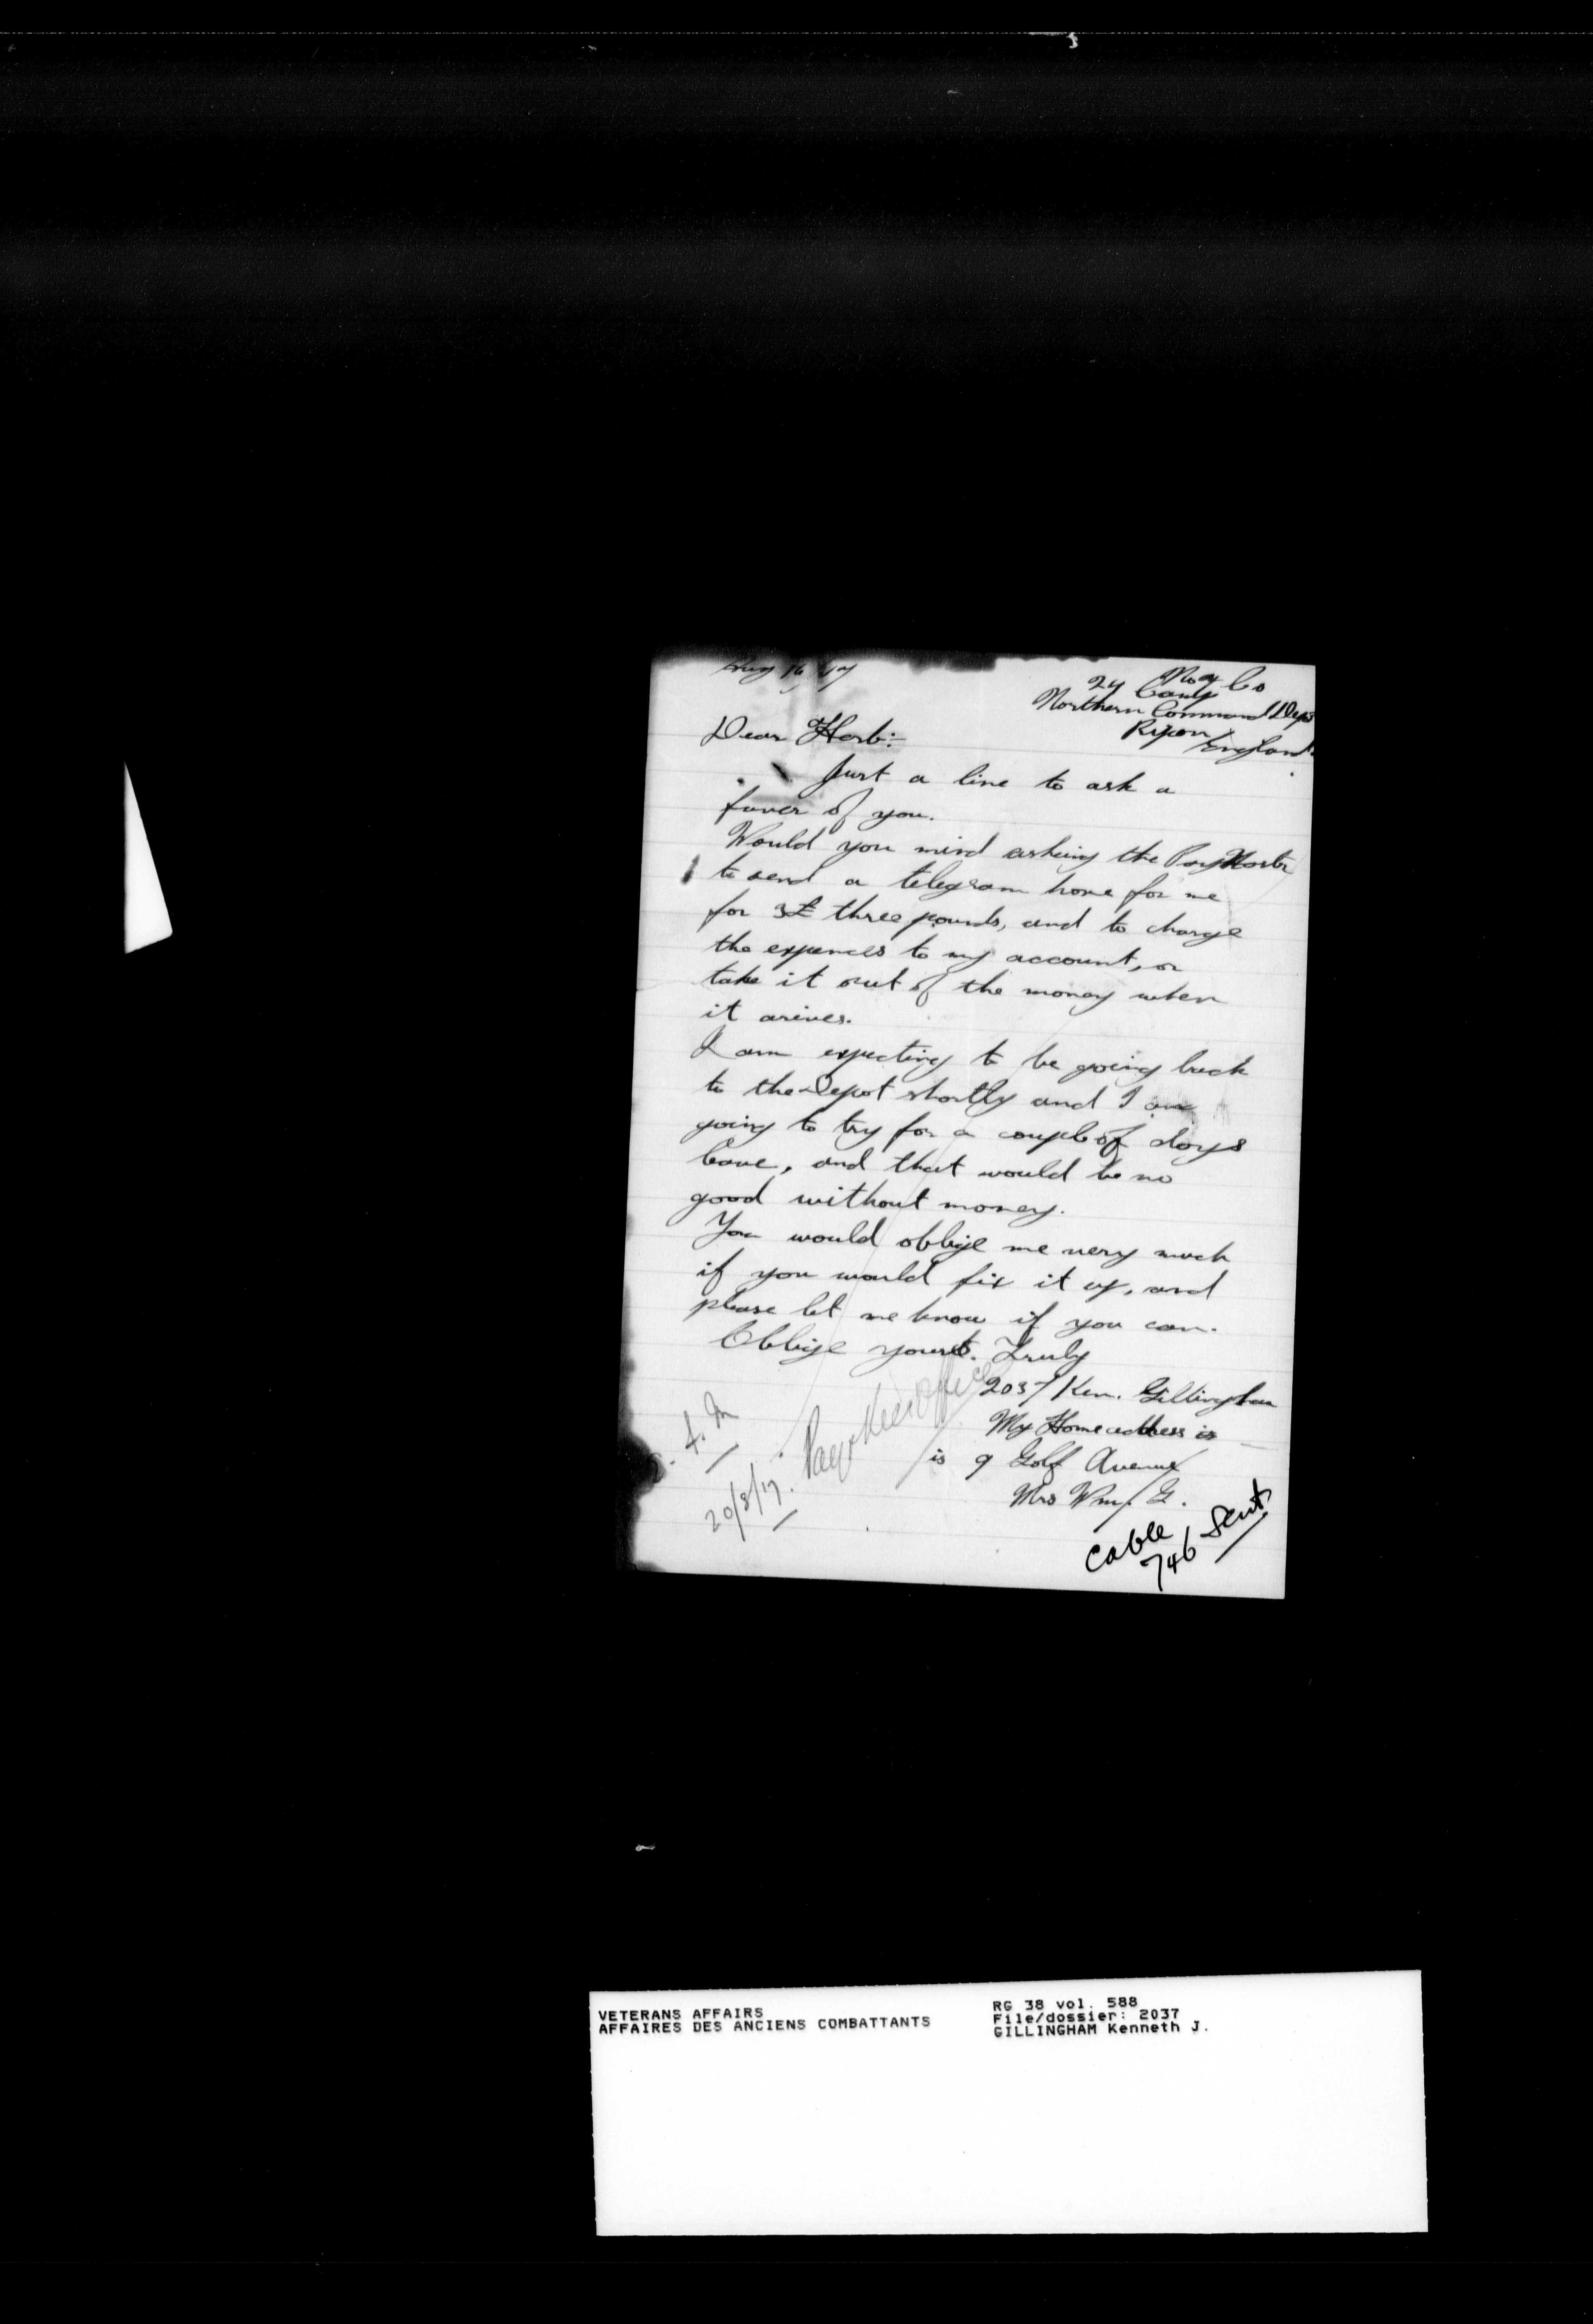 Aug 16/17
No 4 Co
24 Camp
Northern Command Depo
Ripon
England.
Dear Herb:-
Just a line to ask a
faver of you.
Would you mind asking the PayMaster
to send a telegram home for me
for 3£ three pounds, and to charge
the expences to my account, or
take it out of the money when
it arives.
I am expecting to be going back
to the Depot shortly and I am
going to try for a couple of days
leave, and that would be no
good without money.
You would oblige me very much
if you would fix it up, and
please let me know if you can.
Oblige yours. Truly
2037 Ken. Gillingham
My Home address is
is 9 Golf Avenue
Mrs Wm. G.
Office
20/8/17.
Cable Sent
746
VETERANS AFFAIRS
AFFAIRES DES ANCIENS COMBATTANTS
RG 38 vol. 588
File/dossier: 2037
GILLINGHAM Kenneth J.